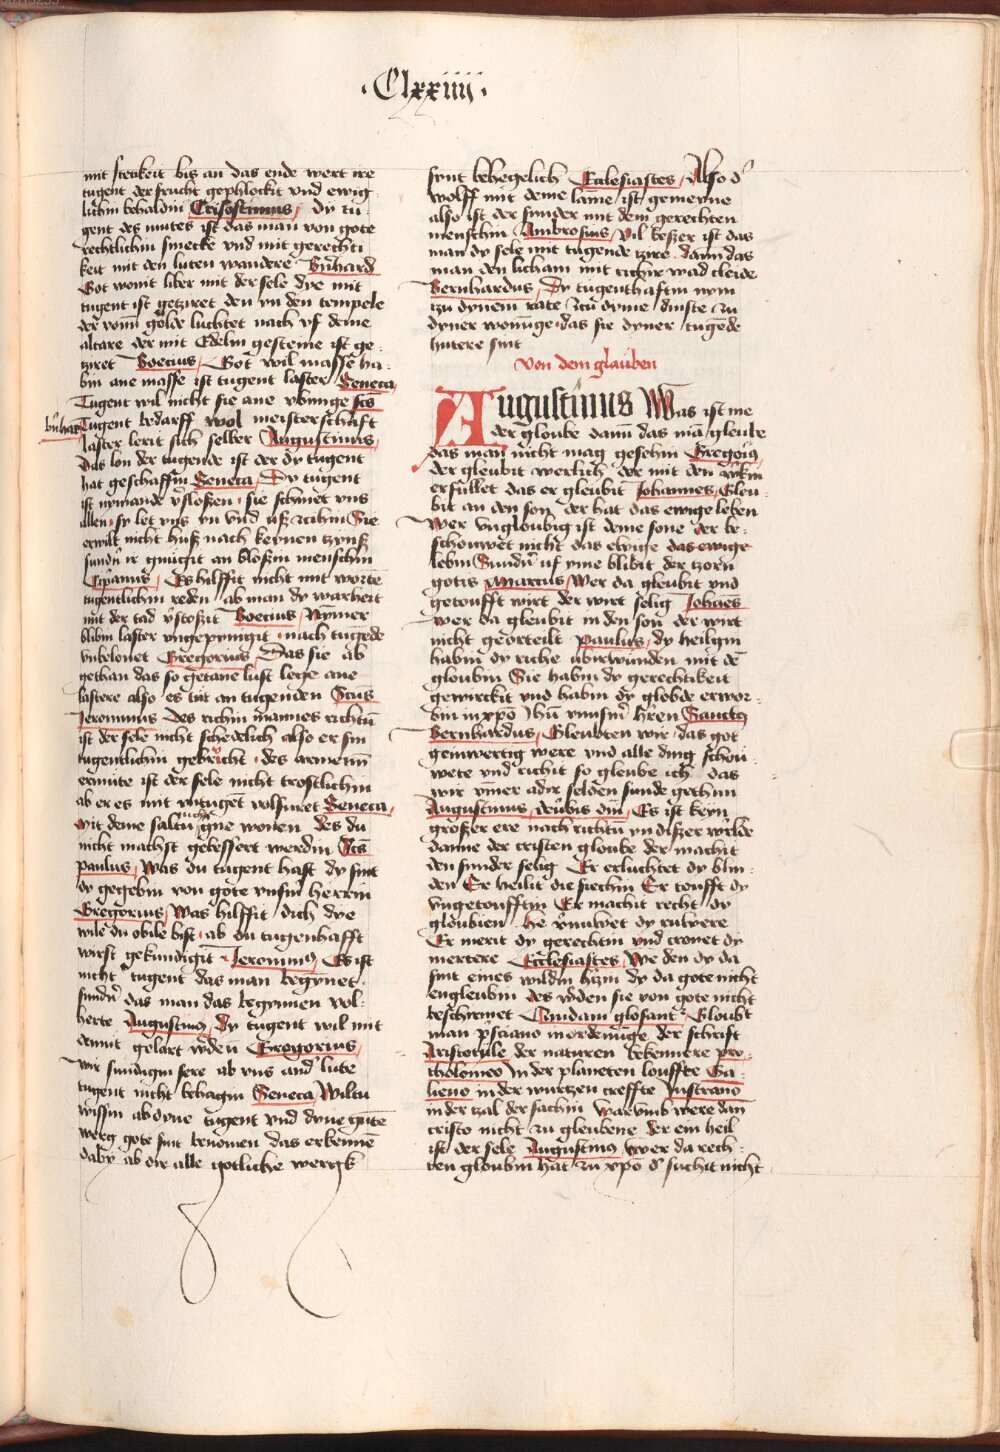 ·Clxxiiij·
mit stetikeit bis an das ende wert ire
tugent der frucht gephlockit vnd ewig
lichin behaldin Crisostimus / dy tu
gent des mutes ist das man von gote
rechtlichin smecke vnd mit gerechti
keit mit den luten wandere Bernhard
Got wonit liber mit der sele dye mit
tugent ist getziret den yn den tempele
der vom golde luchtet nach vf deme
altare der mit Edelm gesteine ist ge
tziret Boecius / Got wil masse ha
bin ane masse ist tugent laster Seneca
Tugent wil nicht sie ane vbunge scs
bernhard Tugent bedarff wol meisterschaft
laster lerit sich selber Augustinus /
Das lon der tugende ist der dy tugent
hat geschaffin Seneca / Dy tugent
ist nymande vslossen · sie schinet vns
allen · sy let vns yn vnd vsz zcihin Sie
erwilt nicht husz nach keynen tzinsz
sundern ir gnugit an bloszin menschin
Ciprianus / Es hilffit nicht mit worte
tugentlichin reden ab man dy warheit
mit der tad vstoszit Boecius / Nymer
blibin laster vngepynigit · nach tugede
vnbelonet Gregorius / Das sie ab
gethan das so getane lust leyge ane
lastere also es tut an tugenden Scus
Jeronimus des richin mannes richtu
ist der sele nicht schedelich also er sin
tugentlichin gebrucht · des armenn
ermute ist der sele nicht trostlichin
ab er es mit vntuget volfuret Seneca /
Mit deme saltu gerne wonen des du
nicht machst gebessert werdin Scs
paulus / Was du tugent hast dy sint
dy gegebin von gote vnsin herrin
Gregorius / Was hilffit dich dye
wile du obile bist · ab du tugenhafft
wirst gekundigit Jeronimus / Es ist
nicht tugent das man begynnet ·
sundern das man das begynnen vol
herte Augustinus / Dy tugent wil mit
demut gelart werden Gregorius /
Wir sundigin sere ab vns ander lute
tugent nicht behagin Seneca / Wiltu
wissin ab dyne tugent vnd dyne gute
werg gote sint benomen das erkenne
daby ab dir alle gotliche wergk
synt behegelich Ecclesiastes / Also der
wolff mit deme lame ist gemeyne
also ist der sunder mit dem gerechten
menschin Ambrosius / Vil besser ist das
man dy sele mit tugende tzire dann das
man den licham mit richir wad cleide
Bernhardus / Dy tugenthaftin nym
tzu dynem rate zcu dyme dinste zcu
dyner wonunge · das sie dyner tugede
hutere sint
Von dem glauben
Augustinus Was ist me
der gloube dann das man gleube
das man nicht mag gesehin Gregorius
der gleubit werlich der mit den werkin
erfullet das er gleubit Johannes / Glou
bit an den son der hat das ewige leben
Wer vngloubig ist deme sone der be
schouwet nicht das ewige das ewige
lebin Sundern vf yme blibit der tzorn
gotis Marcus / Wer da gleubit vnd
getoufft wirt der wirt selig Johanes
Wer da gleubit in den son der wirt
nicht georteilt Paulus / dy heiligin
habin dy riche vbirwunden mit de
gloubin Sie habin dy gerechtikeit
gewirckit vnd habin dy globde erwor
bin in xpo Jhu vnnsm herren Sanctus
Bernhardus / Gleubten wir das got
geinwertig were vnd alle ding schou
wete vnd richit so gleube ich das
wir ymer adir selden sunde gethun
Augustinus de verbis dni / Es ist keyn
groszer ere nach richtu yn diszer werlde
danne der cristen gloube der machit
den sunder selig Er erluchtet dy blin
den Er heilit die siechin Er toufft dy
vngetoufftin Er machit recht dy
gloubien he vernuwet dy ruwere
Er merit dy gerechtin vnd cronet dy
mertere Ecclesiastes / We den dy da
sint eines wildin herzin dy da gote nicht
engleubin des werden sie von gote nicht
beschirmet Quidam glosant Gloubt
man prisciano in ordenuge der schrift
Aristotile der naturen bekennere pro
tholomeo in der planeten louffte Ga
lieno in der wurtzen treffte Justiano
in der tzal der sachin Warumb were dan
cristo nicht zcu gleubene der ein heil
ist der sele Augustinus / Wer da rech
ten gloubin hat zu xpo der suchit nicht